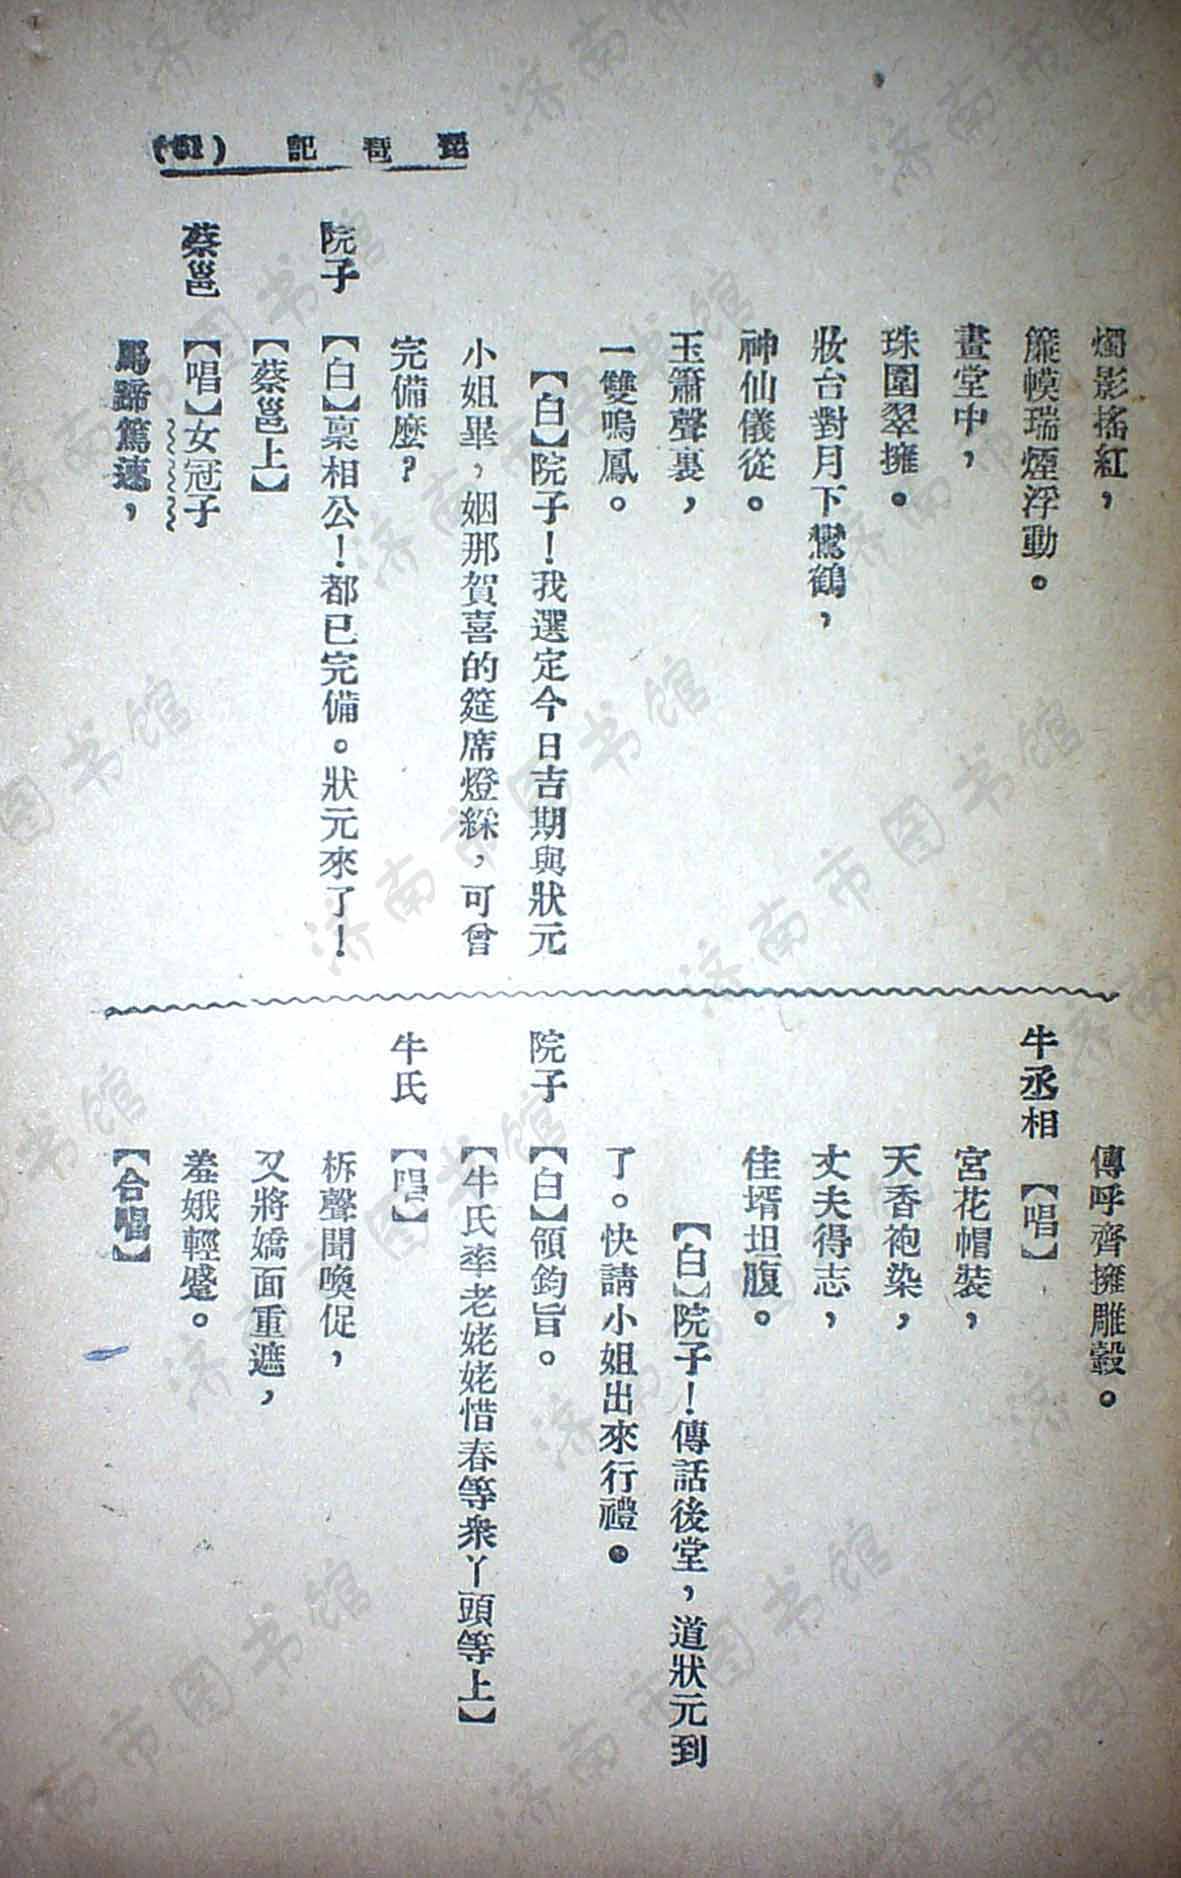 琵琶記 (51)
燭影搖紅，
簾幙瑞煙浮動。
畫堂中，
珠圍翠擁。
妝台對月下鸞鶴，
神仙儀從。
玉簫聲裏，
一雙鳴鳳。
【白】院子！我選定今日吉期與狀元
小姐畢，姻那賀喜的筵席燈綵，可曾
完備麼？
院子 【白】稟相公！都已完備。狀元來了！
【蔡邕上】
蔡邕 【唱】女冠子
馬蹄篤速，
傳呼齊擁雕轂。
牛丞相 【唱】
宮花帽裝，
天香袍染，
丈夫得志，
佳壻坦腹。
【白】院子！傳話後堂，道狀元到
了。快請小姐出來行禮。
院子 【白】領鈞旨。
【牛氏率老姥姥惜春等衆丫頭等上】
牛氏 【唱】
柝聲聞喚促，
又將嬌面重遮，
羞娥輕蹙。
【合唱】
济南市图书馆